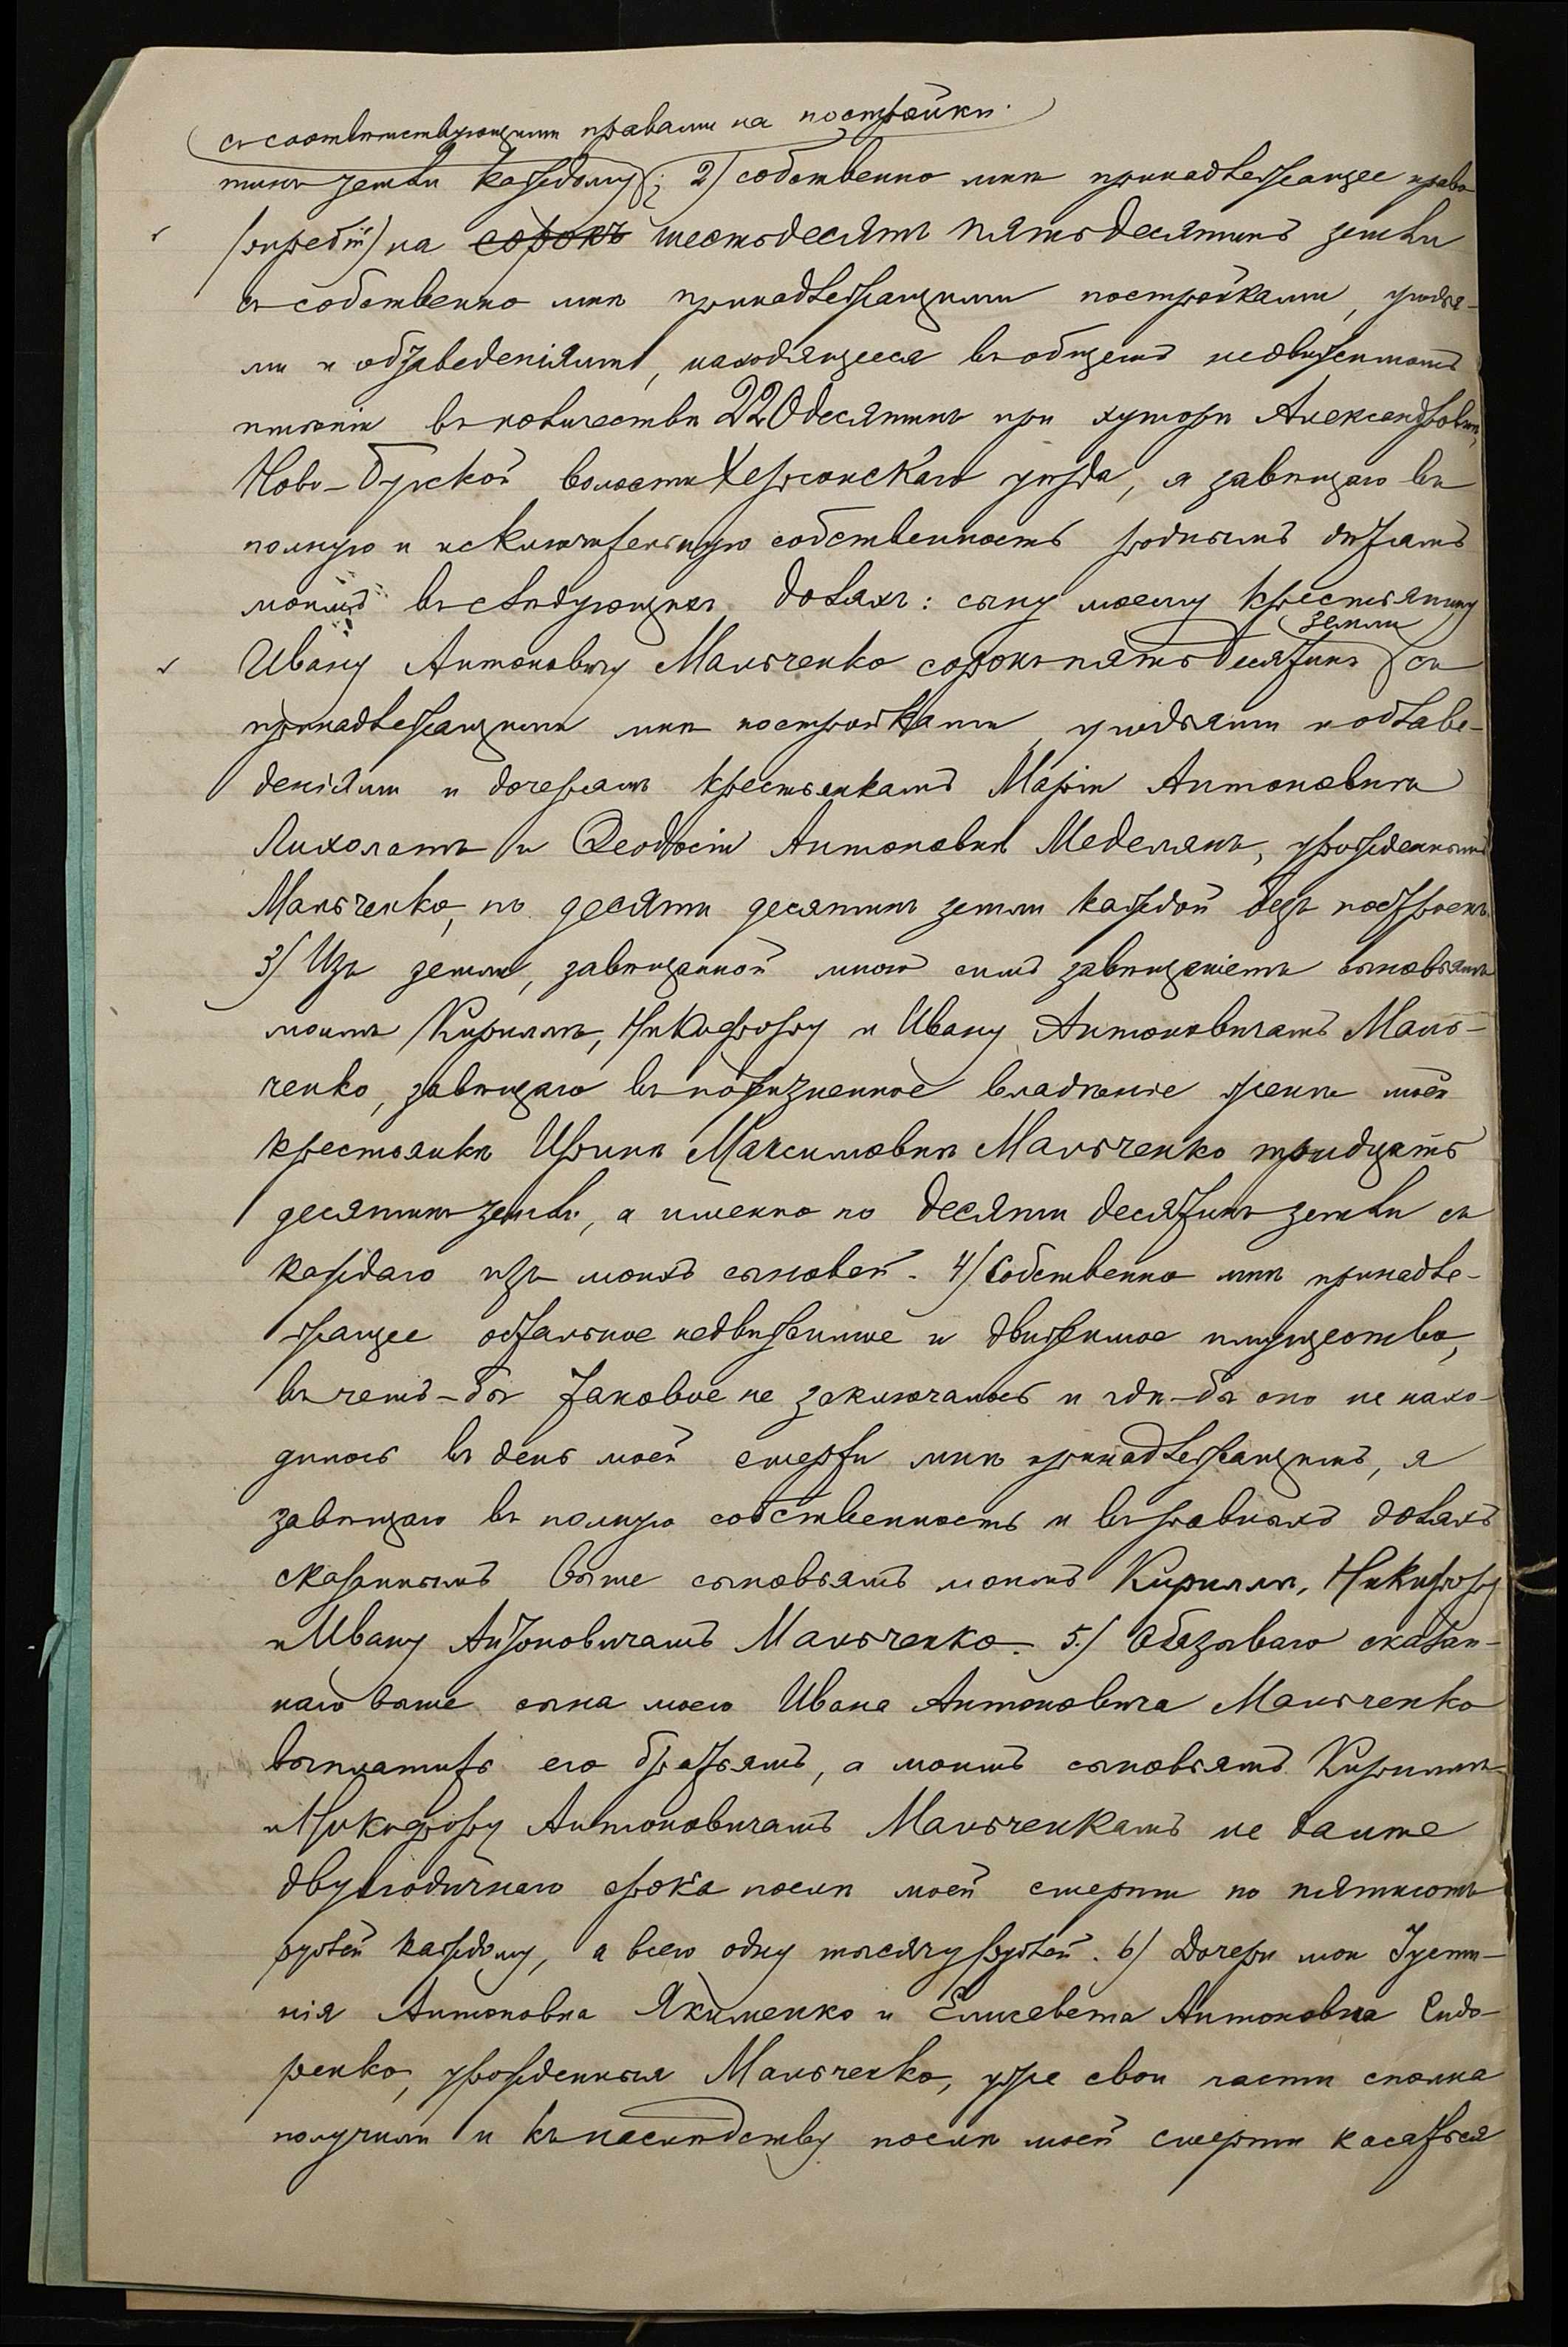 съ соотвѣтствующими правами на постройки
тинъ земли каждому; 2) собственно мнѣ принадлежащее право
(жребій) на сорокъ шестьдесятъ пять десятинъ земли
съ собственно мнѣ принадлежащими постройками, угодья-
ми и обзаведеніями, находящееся въ общемъ недвижимомъ
имѣніи въ количествѣ 220 десятинъ при хуторѣ Александровкѣ,
Ново-Бугской волости Херсонскаго уѣзда, я завѣщаю въ
полную и исключительную собственность роднымъ дѣтямъ
моимъ въ слѣдующихъ доляхъ: сыну моему крестьянину
земли
Ивану Антоновичу Мальченко сорокъ пять десятинъ съ
принадлежащими мнѣ постройками, угодьями и обзаве-
деніями и дочерямъ крестьянкамъ Маріи Антоновнѣ
Лихолатъ и Ѳеодосіи Антоновнѣ Меделянъ, урожденнымъ
Мальченко, по десяти десятинъ земли каждой безъ построекъ.
3) Изъ земли, завѣщанной мною симъ завѣщаніемъ сыновьямъ
моимъ Кириллѣ, Никифору и Ивану Антоновичамъ Маль-
ченко, завѣщаю въ пожизненное владѣніе женѣ моей
крестьянкѣ Иринѣ Максимовнѣ Мальченко тридцать
десятинъ земли, а именно по десяти десятинъ земли съ
каждаго изъ моихъ сыновей. 4) Собственно мнѣ принадле-
жащее остальное недвижимое и движимое имущество,
въ чемъ-бы таковое не заключалось и гдѣ-бы оно не нахо-
дилось въ день моей смерти мнѣ принадлежащимъ, я
завѣщаю въ полную собственность и въ равныхъ доляхъ
сказаннымъ выше сыновьямъ моимъ Кириллѣ, Никифору
и Ивану Антоновичамъ Мальченко. 5) Обязываю сказан-
наго выше сына моего Ивана Антоновича Мальченко
выплатить его братьямъ, а моимъ сыновьямъ Кириллѣ
и Никифору Антоновичамъ Мальченкамъ не далше
двухгодичнаго срока послѣ моей смерти по пятисотъ
рублей каждому, а всего одну тысячу рублей. 6) Дочери мои Іусти-
нія Антоновна Якименко и Елисавета Антоновна Сидо-
ренко, урожденныя Мальченко, уже свои части сполна
получили и къ наслѣдству послѣ моей смерти касаться